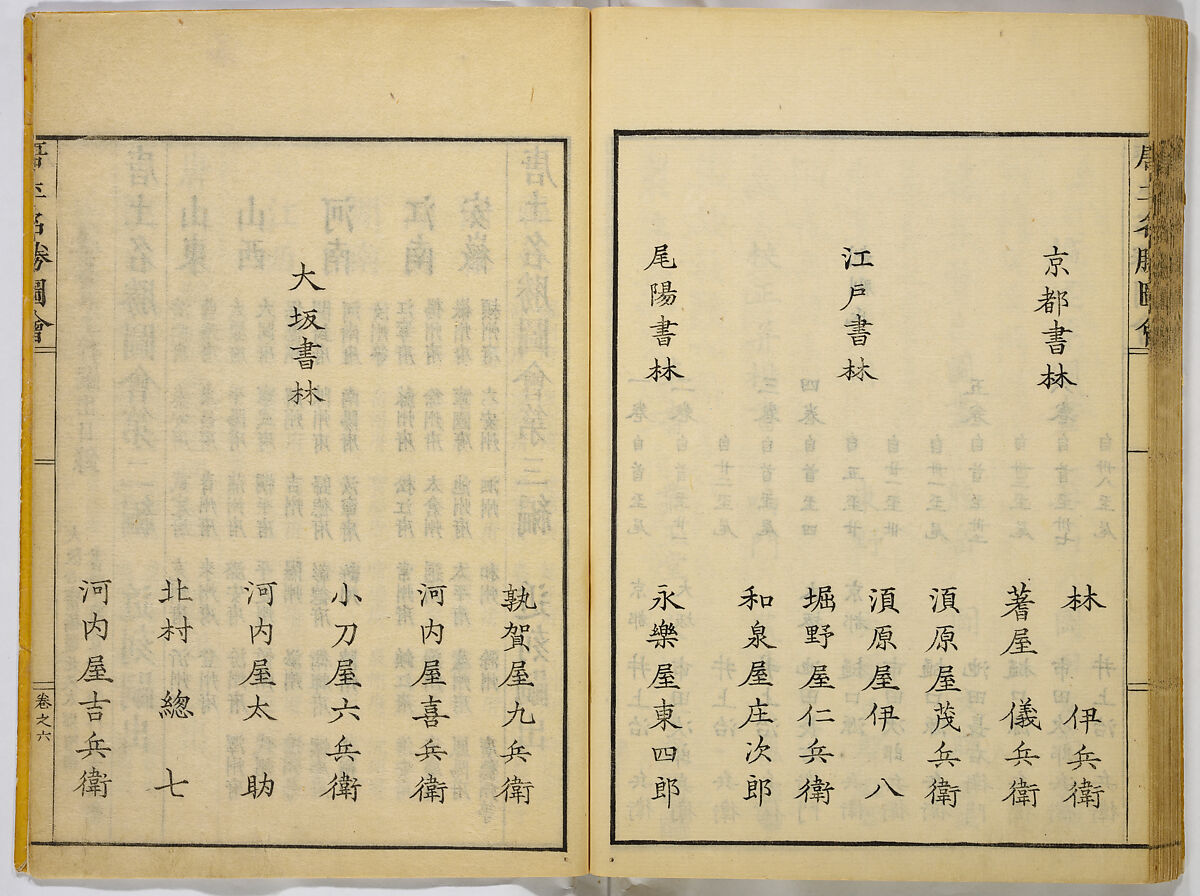 唐土名勝圖會
京都書林
林 伊兵衛
蓍屋儀兵衛
江戸書林
須原屋茂兵衛
須原屋伊八
堀野屋仁兵衛
和泉屋庄次郎
尾陽書林
永樂屋東四郎
大坂書林
敦賀屋九兵衛
河内屋喜兵衛
小刀屋六兵衛
河内屋太助
北村總七
河内屋吉兵衛
唐土名勝圖會
卷之六